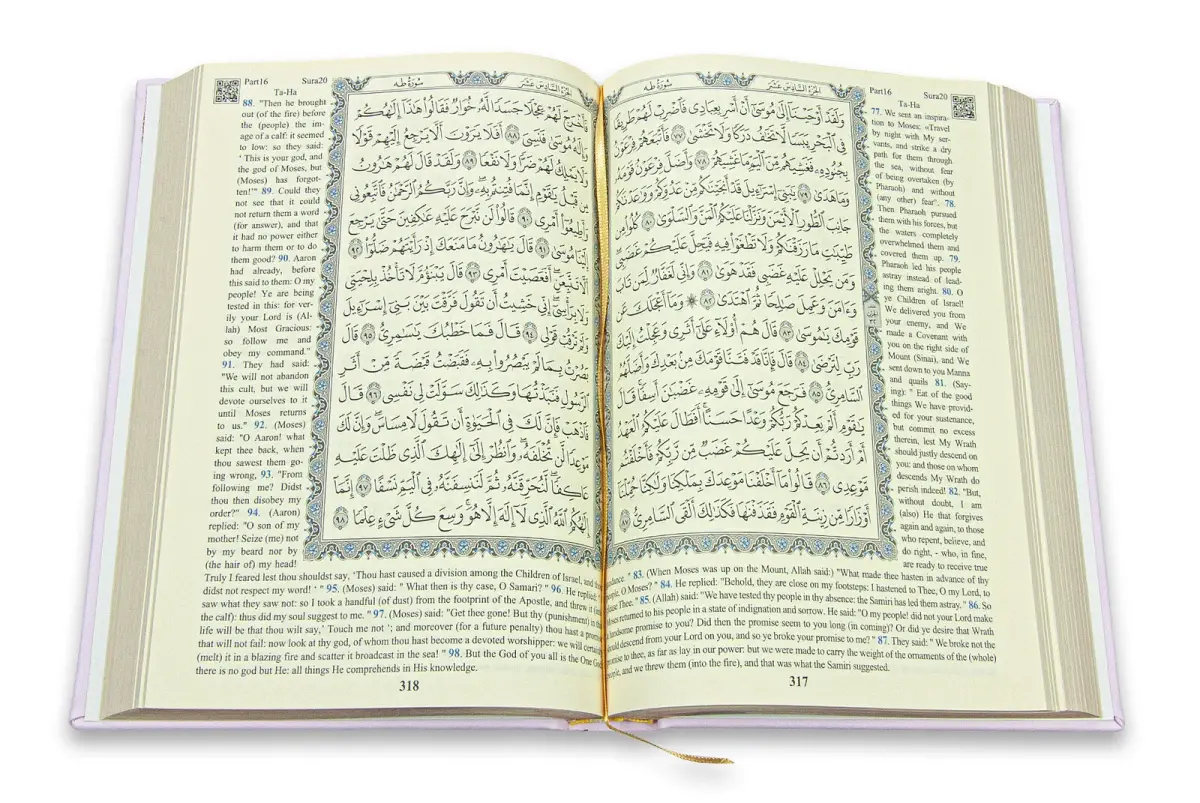 Part16 Sura20
Ta-Ha
سُورَةُ طه
الجُزْءُ السَّادِسُ عَشَرَ
وَلَقَدْ أَوْحَيْنَا إِلَىٰ مُوسَىٰ أَنْ أَسْرِ بِعِبَادِي فَاضْرِبْ لَهُمْ طَرِيقًا
فِي الْبَحْرِ يَبَسًا لَا تَخَافُ دَرَكًا وَلَا تَخْشَىٰ ٧٧ فَأَتْبَعَهُمْ فِرْعَوْنُ
بِجُنُودِهِ فَغَشِيَهُمْ مِنَ الْيَمِّ مَا غَشِيَهُمْ ٧٨ وَأَضَلَّ فِرْعَوْنُ قَوْمَهُ
وَمَا هَدَىٰ ٧٩ يَا بَنِي إِسْرَائِيلَ قَدْ أَنْجَيْنَاكُمْ مِنْ عَدُوِّكُمْ وَوَاعَدْنَاكُمْ
جَانِبَ الطُّورِ الْأَيْمَنَ وَنَزَّلْنَا عَلَيْكُمُ الْمَنَّ وَالسَّلْوَىٰ ٨٠ كُلُوا مِنْ
طَيِّبَاتِ مَا رَزَقْنَاكُمْ وَلَا تَطْغَوْا فِيهِ فَيَحِلَّ عَلَيْكُمْ غَضَبِي
وَمَنْ يَحْلِلْ عَلَيْهِ غَضَبِي فَقَدْ هَوَىٰ ٨١ وَإِنِّي لَغَفَّارٌ لِمَنْ تَابَ
وَآمَنَ وَعَمِلَ صَالِحًا ثُمَّ اهْتَدَىٰ ٨٢ وَمَا أَعْجَلَكَ عَنْ
قَوْمِكَ يَا مُوسَىٰ ٨٣ قَالَ هُمْ أُولَاءِ عَلَىٰ أَثَرِي وَعَجِلْتُ إِلَيْكَ
رَبِّ لِتَرْضَىٰ ٨٤ قَالَ فَإِنَّا قَدْ فَتَنَّا قَوْمَكَ مِنْ بَعْدِكَ وَأَضَلَّهُمُ
السَّامِرِيُّ ٨٥ فَرَجَعَ مُوسَىٰ إِلَىٰ قَوْمِهِ غَضْبَانَ أَسِفًا قَالَ
يَا قَوْمِ أَلَمْ يَعِدْكُمْ رَبُّكُمْ وَعْدًا حَسَنًا أَفَطَالَ عَلَيْكُمُ الْعَهْدُ
أَمْ أَرَدْتُمْ أَنْ يَحِلَّ عَلَيْكُمْ غَضَبٌ مِنْ رَبِّكُمْ فَأَخْلَفْتُمْ
مَوْعِدِي ٨٦ قَالُوا مَا أَخْلَفْنَا مَوْعِدَكَ بِمَلْكِنَا وَلَٰكِنَّا حُمِّلْنَا
أَوْزَارًا مِنْ زِينَةِ الْقَوْمِ فَقَذَفْنَاهَا فَكَذَٰلِكَ أَلْقَى السَّامِرِيُّ ٨٧
77. We sent an inspira-
tion to Moses: «Travel
by night with My ser-
vants, and strike a dry
path for them through
the sea, without fear
of being overtaken (by
Pharaoh) and without
(any other) fear". 78.
Then Pharaoh pursued
them with his forces, but
the waters completely
overwhelmed them and
covered them up. 79.
Pharaoh led his people
astray instead of lead-
ing them aright. 80. O
ye Children of Israel!
We delivered you from
your enemy, and We
made a Covenant with
you on the right side of
Mount (Sinai), and We
sent down to you Manna
and quails 81. (Say-
ing): " Eat of the good
things We have provid-
ed for your sustenance,
but commit no excess
therein, lest My Wrath
should justly descend on
you: and those on whom
descends My Wrath do
perish indeed! 82. "But,
without doubt, I am
(also) He that forgives
again and again, to those
who repent, believe, and
do right, - who, in fine,
are ready to receive true
" 83. (When Moses was up on the Mount, Allah said:) "What made thee hasten in advance of thy
O Moses? " 84. He replied: "Behold, they are close on my footsteps: I hastened to Thee, O my Lord, to
Thee." 85. (Allah) said: "We have tested thy people in thy absence: the Samiri has led them astray." 86. So
returned to his people in a state of indignation and sorrow. He said: "O my people! did not your Lord make
handsome promise to you? Did then the promise seem to you long (in coming)? Or did ye desire that Wrath
should descend from your Lord on you, and so ye broke your promise to me?" 87. They said: " We broke not the
promise to thee, as far as lay in our power: but we were made to carry the weight of the ornaments of the (whole)
and we threw them (into the fire), and that was what the Samiri suggested.
317
Part16 Sura20
Ta-Ha
الجُزْءُ السَّادِسُ عَشَرَ
سُورَةُ طه
فَأَخْرَجَ لَهُمْ عِجْلًا جَسَدًا لَهُ خُوَارٌ فَقَالُوا هَٰذَا إِلَٰهُكُمْ
وَإِلَٰهُ مُوسَىٰ فَنَسِيَ ٨٨ أَفَلَا يَرَوْنَ أَلَّا يَرْجِعُ إِلَيْهِمْ قَوْلًا
وَلَا يَمْلِكُ لَهُمْ ضَرًّا وَلَا نَفْعًا ٨٩ وَلَقَدْ قَالَ لَهُمْ هَارُونُ
مِنْ قَبْلُ يَا قَوْمِ إِنَّمَا فُتِنْتُمْ بِهِ وَإِنَّ رَبَّكُمُ الرَّحْمَٰنُ فَاتَّبِعُونِي
وَأَطِيعُوا أَمْرِي ٩٠ قَالُوا لَنْ نَبْرَحَ عَلَيْهِ عَاكِفِينَ حَتَّىٰ يَرْجِعَ
إِلَيْنَا مُوسَىٰ ٩١ قَالَ يَا هَارُونُ مَا مَنَعَكَ إِذْ رَأَيْتَهُمْ ضَلُّوا ٩٢
أَلَّا تَتَّبِعَنِ أَفَعَصَيْتَ أَمْرِي ٩٣ قَالَ يَبْنَؤُمَّ لَا تَأْخُذْ بِلِحْيَتِي
وَلَا بِرَأْسِي إِنِّي خَشِيتُ أَنْ تَقُولَ فَرَّقْتَ بَيْنَ بَنِي إِسْرَائِيلَ
وَلَمْ تَرْقُبْ قَوْلِي ٩٤ قَالَ فَمَا خَطْبُكَ يَا سَامِرِيُّ ٩٥ قَالَ
بَصُرْتُ بِمَا لَمْ يَبْصُرُوا بِهِ فَقَبَضْتُ قَبْضَةً مِنْ أَثَرِ
الرَّسُولِ فَنَبَذْتُهَا وَكَذَٰلِكَ سَوَّلَتْ لِي نَفْسِي ٩٦ قَالَ
فَاذْهَبْ فَإِنَّ لَكَ فِي الْحَيَاةِ أَنْ تَقُولَ لَا مِسَاسَ وَإِنَّ لَكَ
مَوْعِدًا لَنْ تُخْلَفَهُ وَانْظُرْ إِلَىٰ إِلَٰهِكَ الَّذِي ظَلْتَ عَلَيْهِ
عَاكِفًا لَنُحَرِّقَنَّهُ ثُمَّ لَنَنْسِفَنَّهُ فِي الْيَمِّ نَسْفًا ٩٧ إِنَّمَا
إِلَٰهُكُمُ اللَّهُ الَّذِي لَا إِلَٰهَ إِلَّا هُوَ وَسِعَ كُلَّ شَيْءٍ عِلْمًا ٩٨
88. "Then he brought
out (of the fire) before
the (people) the im-
age of a calf: it seemed
to low: so they said:
' This is your god, and
the god of Moses, but
(Moses) has forgot-
ten!'" 89. Could they
not see that it could
not return them a word
(for answer), and that
it had no power either
to harm them or to do
them good? 90. Aaron
had already, before
this said to them: O my
people! Ye are being
tested in this: for ver-
ily your Lord is (Al-
lah) Most Gracious:
so follow me and
obey my command."
91. They had said:
"We will not abandon
this cult, but we will
devote ourselves to it
until Moses returns
to us." 92. (Moses)
said: "O Aaron! what
kept thee back, when
thou sawest them go-
ing wrong, 93. "From
following me? Didst
thou then disobey my
order?" 94. (Aaron)
replied: "O son of my
mother! Seize (me) not
by my beard nor by
(the hair of) my head!
Truly I feared lest thou shouldst say, 'Thou hast caused a division among the Children of Israel, and
didst not respect my word! ' " 95. (Moses) said: " What then is thy case, O Samari? " 96. He replied:
saw what they saw not: so I took a handful (of dust) from the footprint of the Apostle, and threw it
the calf): thus did my soul suggest to me. " 97. (Moses) said: "Get thee gone! But thy (punishment) in this
life will be that thou wilt say,' Touch me not '; and moreover (for a future penalty) thou hast a promise
that will not fail: now look at thy god, of whom thou hast become a devoted worshipper: we will certainly
(melt) it in a blazing fire and scatter it broadcast in the sea! " 98. But the God of you all is the One God
there is no god but He: all things He comprehends in His knowledge.
318